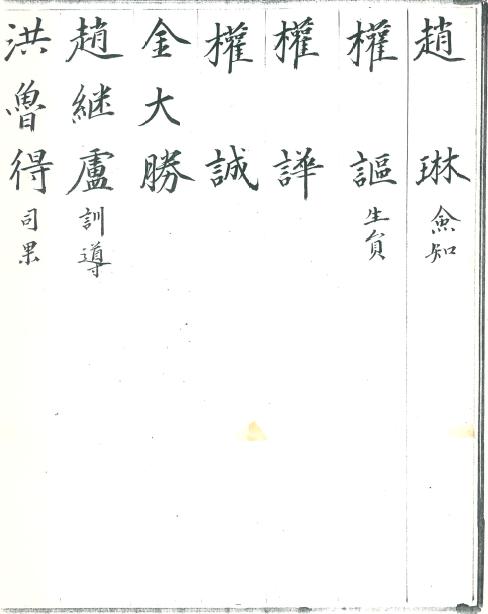 趙琳僉知
權謳生員
權譁
權誠
金大勝
趙継盧訓導
洪魯得司果